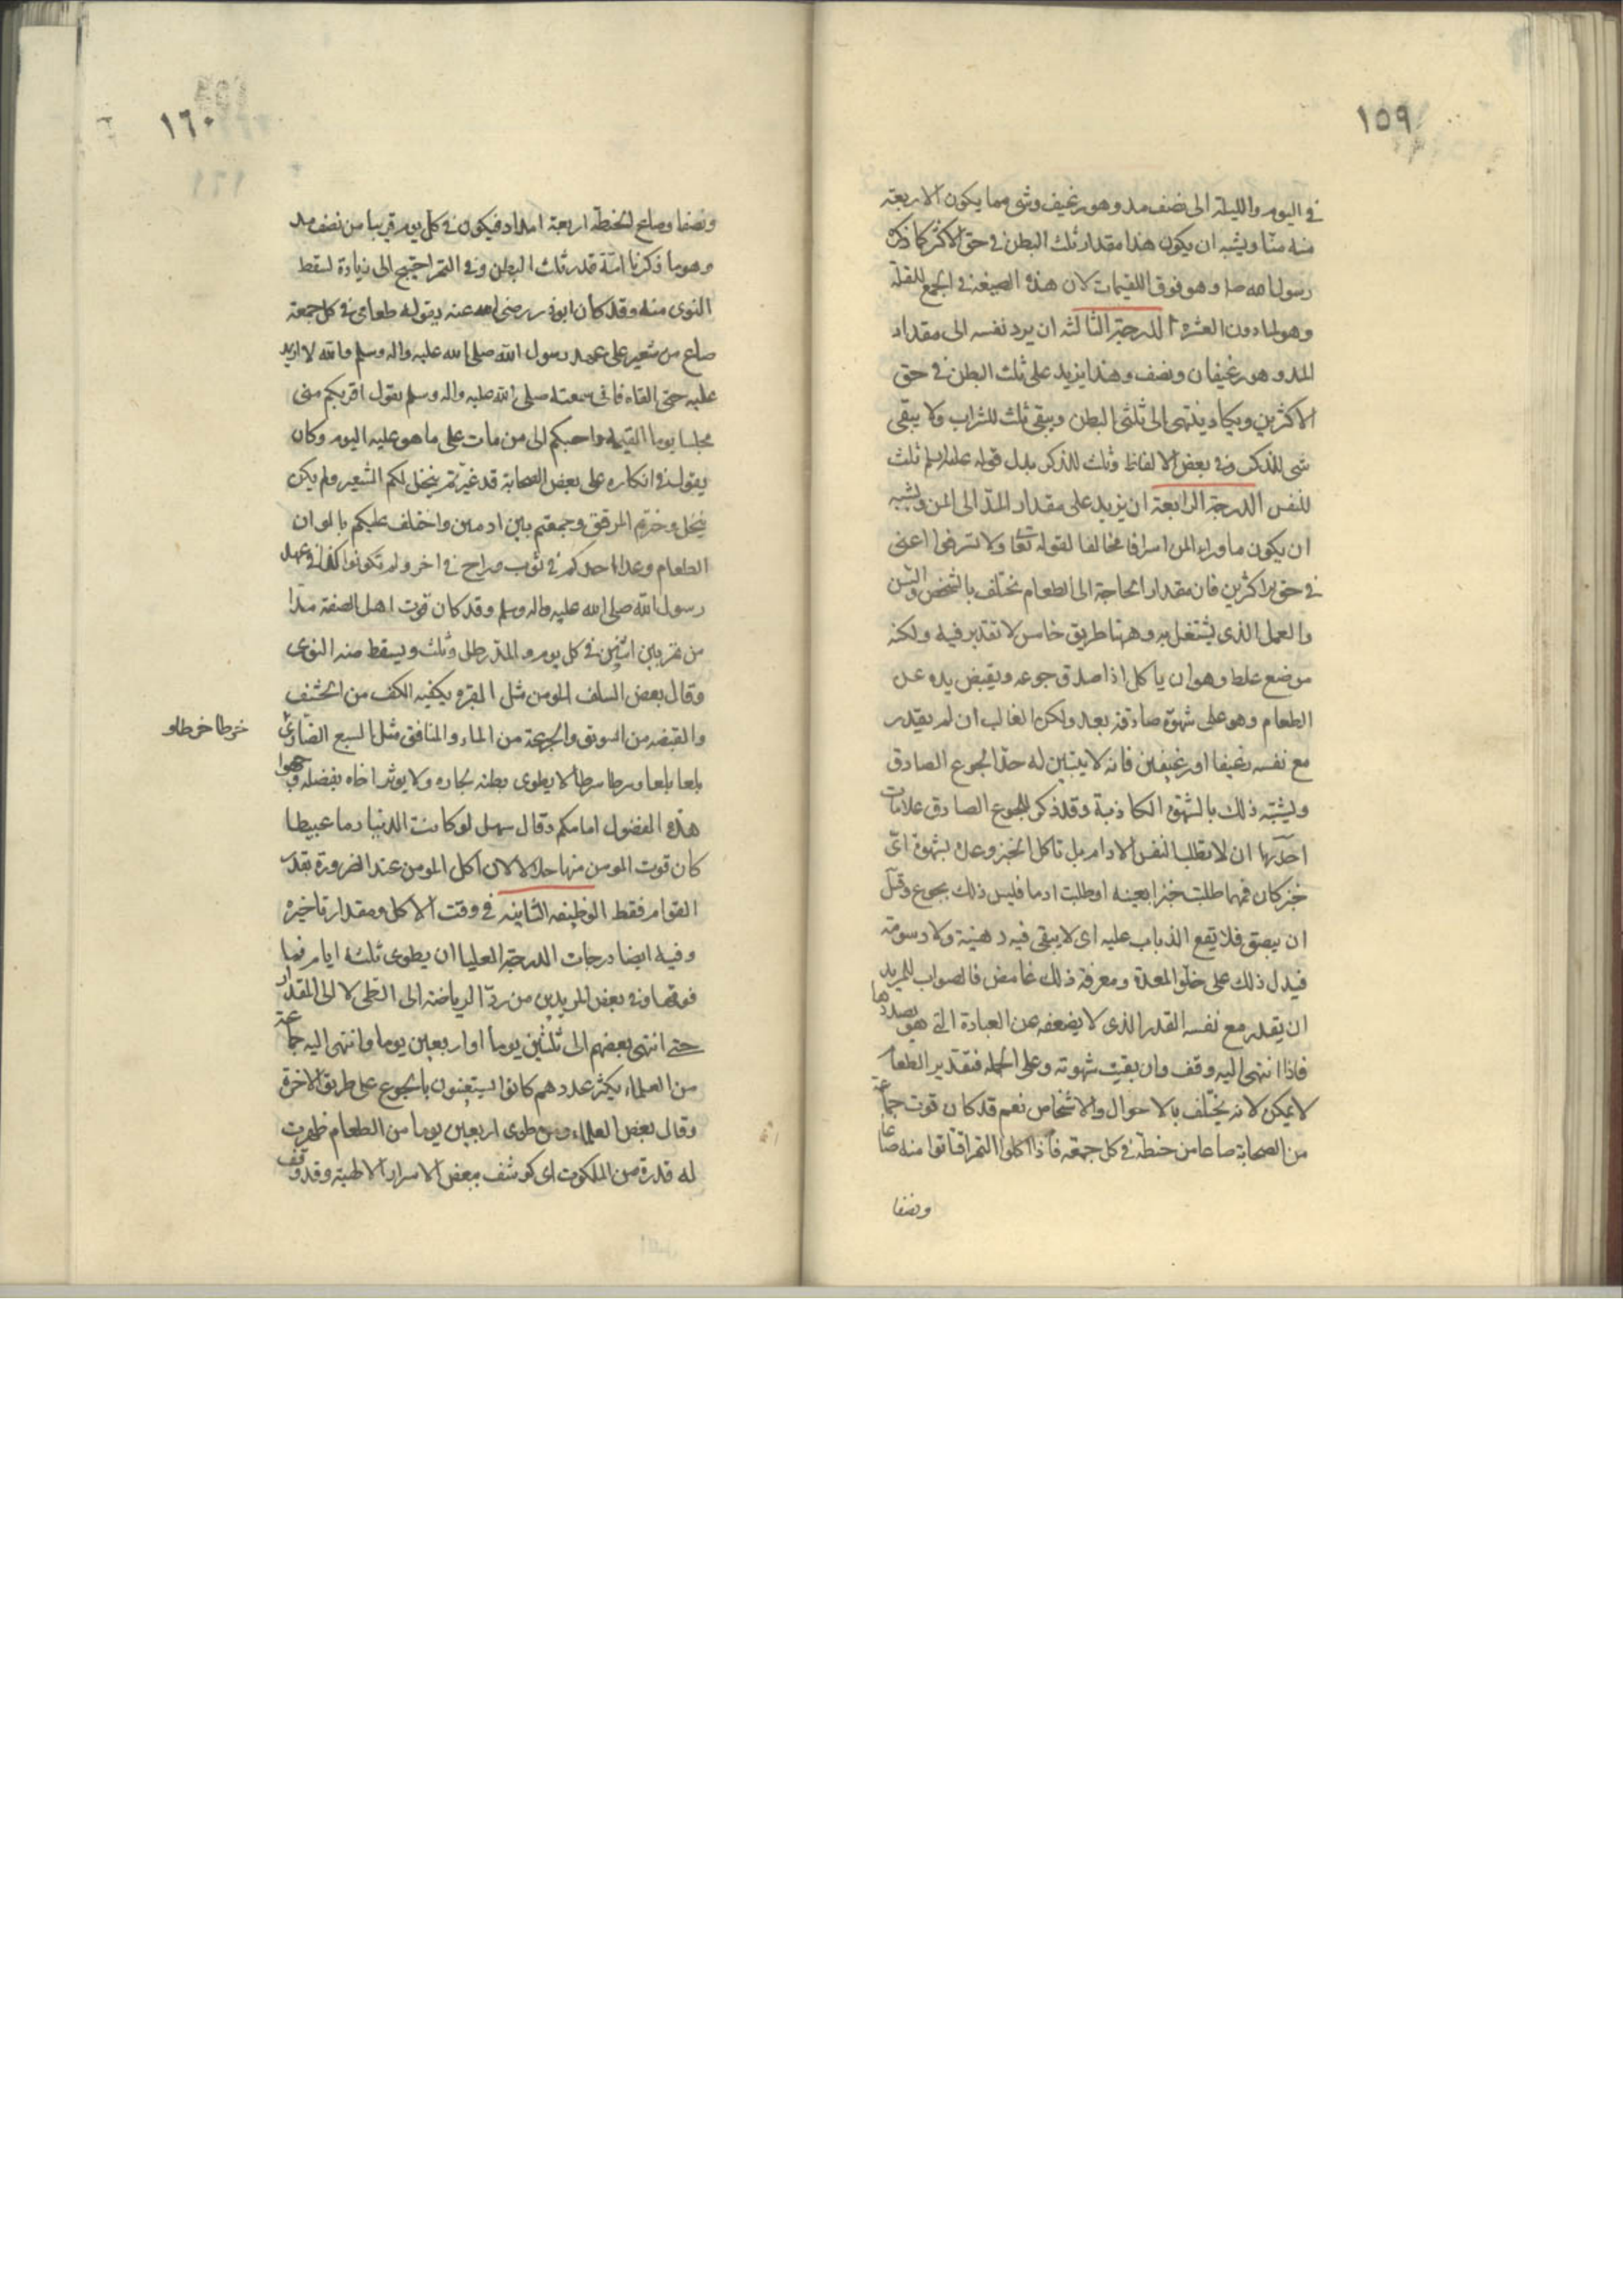 ١٥٩
في اليوم والليلة الى نصف مد وهو رغيف وشئ مما يكون الاربعة
منه منّا ويشبه ان يكون هذا مقدار ثلث البطن في حق الاكثر كما ذكره
رسول الله صلم وهو فوق اللقيمات لان هذه الصيغة في الجمع للقلة
وهو لما دون العشرة الدرجة الثالثة ان يرد نفسه الى مقدار
المد وهو رغيفان ونصف وهذا يزيد على ثلث البطن في حق
الاكثرين ويكاد ينتهى الى ثلثي البطن ويبقى ثلث للشراب ولا يبقى
شئ للذكر وفي بعض الالفاظ وثلث للذكر بدل قوله عليه السلم ثلث
للنفس الدرجة الرابعة ان يزيد على مقدار المدّ الى المن ويشبه
ان يكون ماوراء المن اسرافا مخالفا لقوله تعا ولا تسرفوا اعنى
في حق الاكثرين فان مقدار الحاجة الى الطعام يختلف بالشخص والسن
والعمل الذى يشتغل به وههنا طريق خامس لا تقدير فيه ولكنه
موضع غلط وهو ان ياكل اذا صدق جوعه ويقبض يده عن
الطعام وهو على شهوة صادقة بعد ولكن الغالب ان لم يقدر
مع نفسه رغيفا او رغيفين فانه لا يتبين له حدّ الجوع الصادق
ويشتبه ذلك بالشهوة الكاذبة وقد ذكر للجوع الصادق علامات
احديها ان لا تطلب النفس الادام بل تاكل الخبز وحده بشهوة اىّ
خبز كان فمهما طلبت خبزا بعينه او طلبت ادما فليس ذلك بجوع وقيل
ان يبصق فلا يقع الذباب عليه اى لا يبقى فيه دهنية ولا دسومة
فيدل ذلك على خلّو المعدة ومعرفة ذلك غامض فالصواب للمريد
ان يقدر مع نفسه القدر الذى لا يضعفه عن العبادة التي هو بصددها
فاذا انتهى اليه وقف وان بقيت شهوته وعلى الجملة فتقدير الطعام
لا يمكن لانه يختلف بالاحوال والاشخاص نعم قد كان قوت جماعة
من الصحابة صاعا من حنطة في كل جمعة فاذا اكلوا التمر اقتاتوا منه صاعا
ونصفا
١٦٠
ونصفا وصاع الحنطة اربعة امداد فيكون في كل يوم قريبا من نصف مد
وهو ما ذكرنا انّه قدر ثلث البطن وفي التمر احتيج الى زيادة لسقط
النوى منه وقد كان ابوذر رضى الله عنه يقول طعامى في كل جمعة
صاع من شعير على عهد رسول الله صلى الله عليه واله وسلم والله لا ازيد
عليه حتى القاه فانى سمعته صلى الله عليه واله وسلم يقول اقربكم منى
مجلسا يوم القيمه واحبكم الى من مات على ما هو عليه اليوم وكان
يقول في انكاره على بعض الصحابة قد غيّرتم ينخل لكم الشعير ولم يكن
ينخل وخبزتم المرقق وجمعتم بين ادمين واختلف عليكم بالوان
الطعام وغدا احدكم في ثوب وراح في اخر ولم تكونوا كذا في عهد
رسول الله صلى الله عليه واله وسلم وقد كان قوت اهل الصفة مدّا
من تمر بين اثنين في كل يوم والمدّ رطل وثلث ويسقط منه النوى
وقال بعض السلف المومن مثل البقرة يكفيه الكف من الحشف
والقبضة من السويق والجرعة من الماء والمنافق مثل السبع الضارى
خرطا خرطا و
بلعا بلعا وسرطا سرطا لا يطوى بطنه لجاره ولا يوثر اخاه بفضله وجهوا
هذه الفضول امامكم وقال سهل لو كانت الدنيا دما عبيطا
كان قوت المومن منها حلالا لان اكل المومن عند الضرورة بقدر
القوام فقط الوظيفة الثانيه في وقت الاكل ومقدار تاخيره
وفيه ايضا درجات الدرجة العليا ان يطوى ثلثة ايام فما
فوقها وفي بعض المريدين من ردّ الرياضة الى الطى لا الى المقدار
حتى انتهى بعضهم الى ثلثين يوما او اربعين يوما وانتهى اليه جماعة
من العلماء يكثر عددهم كانوا يستعينون بالجوع على طريق الاخرة
وقال بعض العلماء من طوى اربعين يوما من الطعام ظهرت
له قدرة من الملكوت اى كوشف ببعض الاسرار الالهية وقد وقف